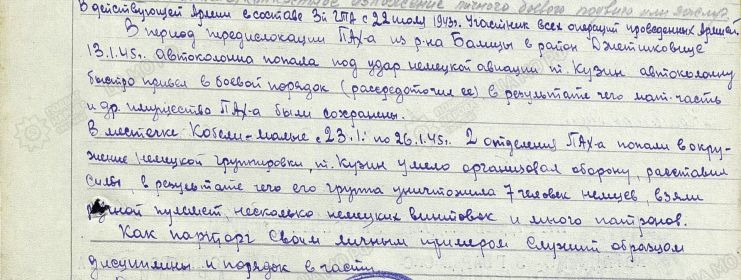 В действующей Армии в составе 3й ГТА с 22 июля 1943г. Участник всех операций проведенных Армией.
В период передислокации ПАХ-а из р-на Балицы в район Джетиковице
13.1.45г. автоколонна попала под удар немецкой авиации т. Кузин автоколонну
быстро привел в боевой порядок (рассредоточил ее) в результате чего мат. часть
и др. имущество ПАХ-а были сохранены.
В местечке Кобели-малые с 23.1. по 26.1.45г. 2 отделения ПАХ-а попали в окру-
жение немецкой группировки, т. Кузин умело организовал оборону, расставил
силы, в результате чего его группа уничтожила 7 человек немцев, взяли
ручной пулемет, несколько немецких винтовок и много патронов.
Как парторг своим личным примером служит образцом
дисциплины и порядок в части